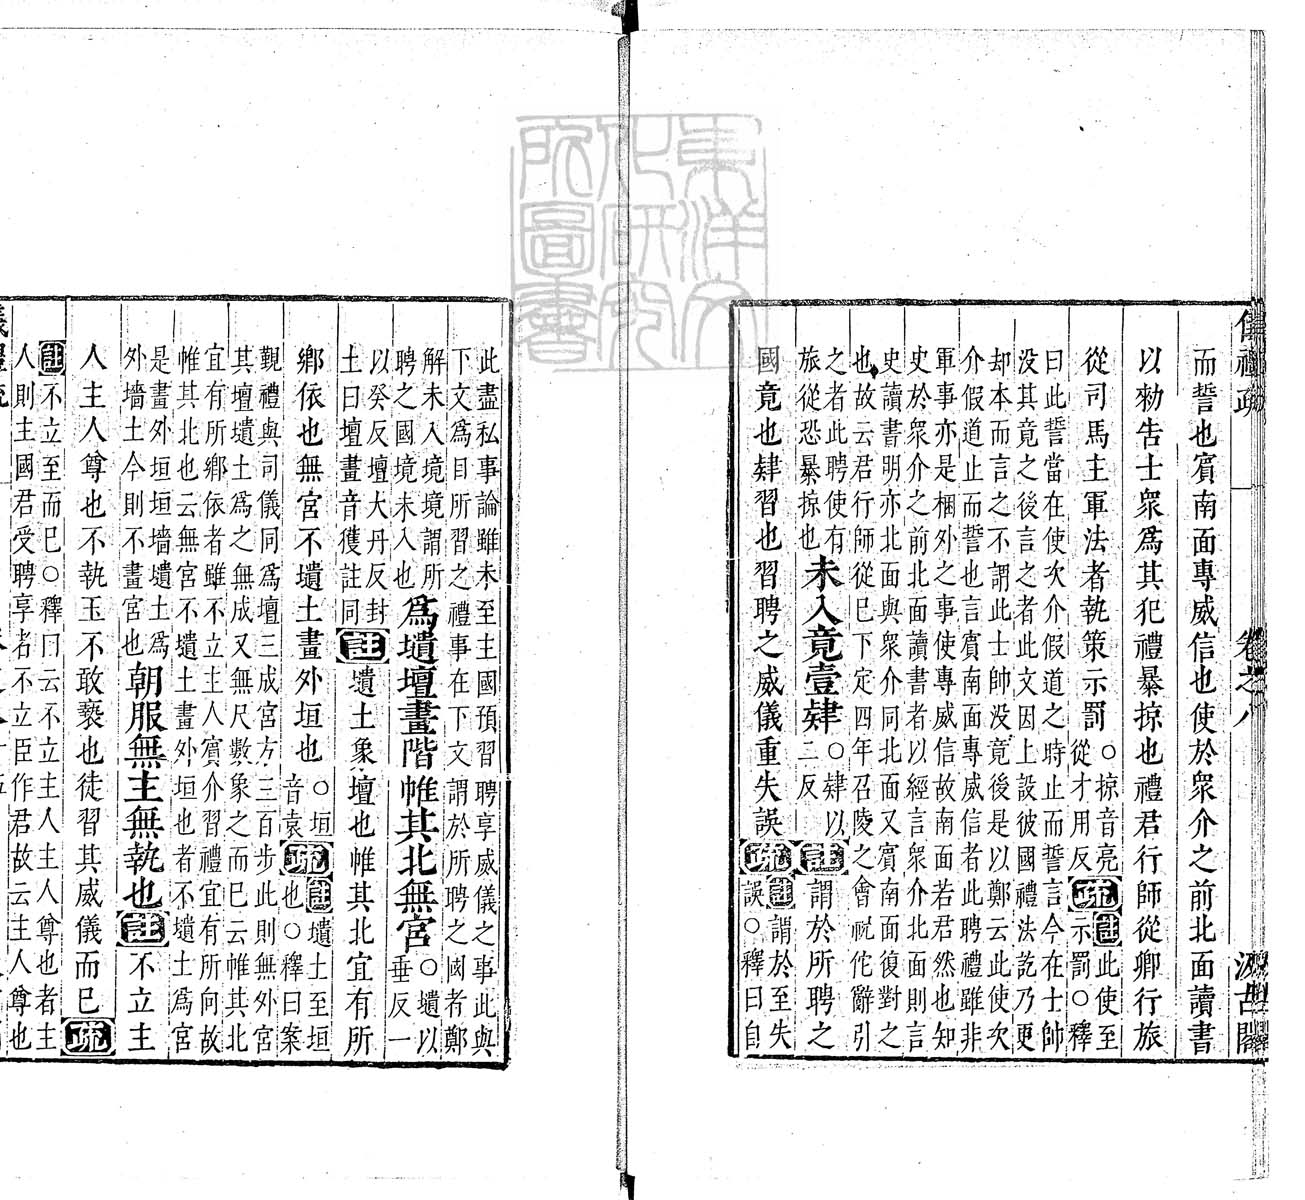 儀禮疏 卷之八 汲古閣
而誓也賓南面專威信也使於衆介之前北面讀書
以勑告士衆爲其犯禮暴掠也禮君行師從卿行旅
從司馬主軍法者執策示罰
○掠音亮
從才用反
疏
註此使至
示罰○釋
曰此誓當在使次介假道之時止而誓言今在士帥
没其竟之後言之者此文因上設彼國禮法訖乃更
却本而言之不謂此士帥没竟後是以鄭云此使次
介假道止而誓也言賓南面專威信者此聘禮雖非
軍事亦是梱外之事使專威信故南面若君然也知
史於衆介之前北面讀書者以經言衆介北面則言
史讀書明亦北面與衆介同北面又賓南面復對之
也故云君行師從已下定四年召陵之會祝佗辭引
之者此聘使有
旅從恐暴掠也
未入竟壹肄
○肄以
二反
註
謂於所聘之
國竟也肄習也習聘之威儀重失誤
疏
註謂於至失
誤○釋曰自
此盡私事論雖未至主國預習聘享威儀之事此與
下文爲目所習之禮事在下文謂於所聘之國者鄭
解未入境境謂所
聘之國境未入也
爲壝壇畫階帷其北無宮
○壝以
垂反一
以癸反壇大丹反封
土曰壇畫音獲註同
註
壝土象壇也帷其北宜有所
鄉依也無宮不壝土畫外垣也
○垣
音袁
疏
註壝土至垣
也○釋曰案
覲禮與司儀同爲壇三成宮方三百步此則無外宮
其壇壝土爲之無成又無尺數象之而已云帷其北
宜有所鄉依者雖不立主人賓介習禮宜有所向故
帷其北也云無宮不壝土畫外垣也者不壝土爲宮
是畫外垣垣墻壝土爲
外墻土今則不畫宮也
朝服無主無執也
註
不立主
人主人尊也不執玉不敢褻也徒習其威儀而已
疏
註不立至而已○釋曰云不立主人主人尊也者主
人則主國君受聘享者不立臣作君故云主人尊也